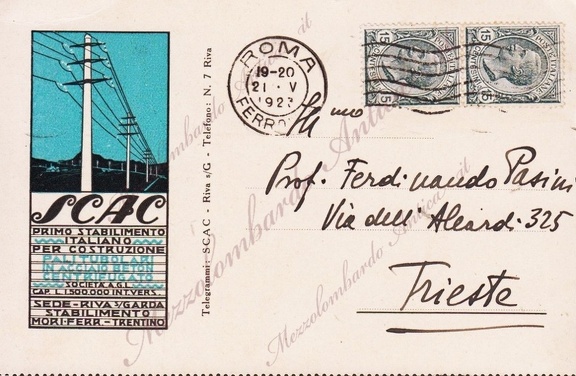 SCAC
PRIMO STABILIMENTO
ITALIANO
PER COSTRUZIONE
PALI TUBOLARI
IN ACCIAIO BETON
CENTRIFUGATO
SOCIETÀ A G.I.
CAP. L. 1.500.000 INT. VERS.
SEDE - RIVA S/GARDA
STABILIMENTO
MORI-FERR. - TRENTINO
Telegrammi: SCAC - Riva s/G - Telefono: N. 7 Riva
ROMA
19-20
21 · V
1923
FERROVIA
15 POSTE ITALIANE 15
15 POSTE ITALIANE 15
Ill mo
Prof. Ferdinando Pasini
Via dell' Aleardi 325
Trieste
Mezzolombardo Antica.it
Mezzolombardo Antica.it